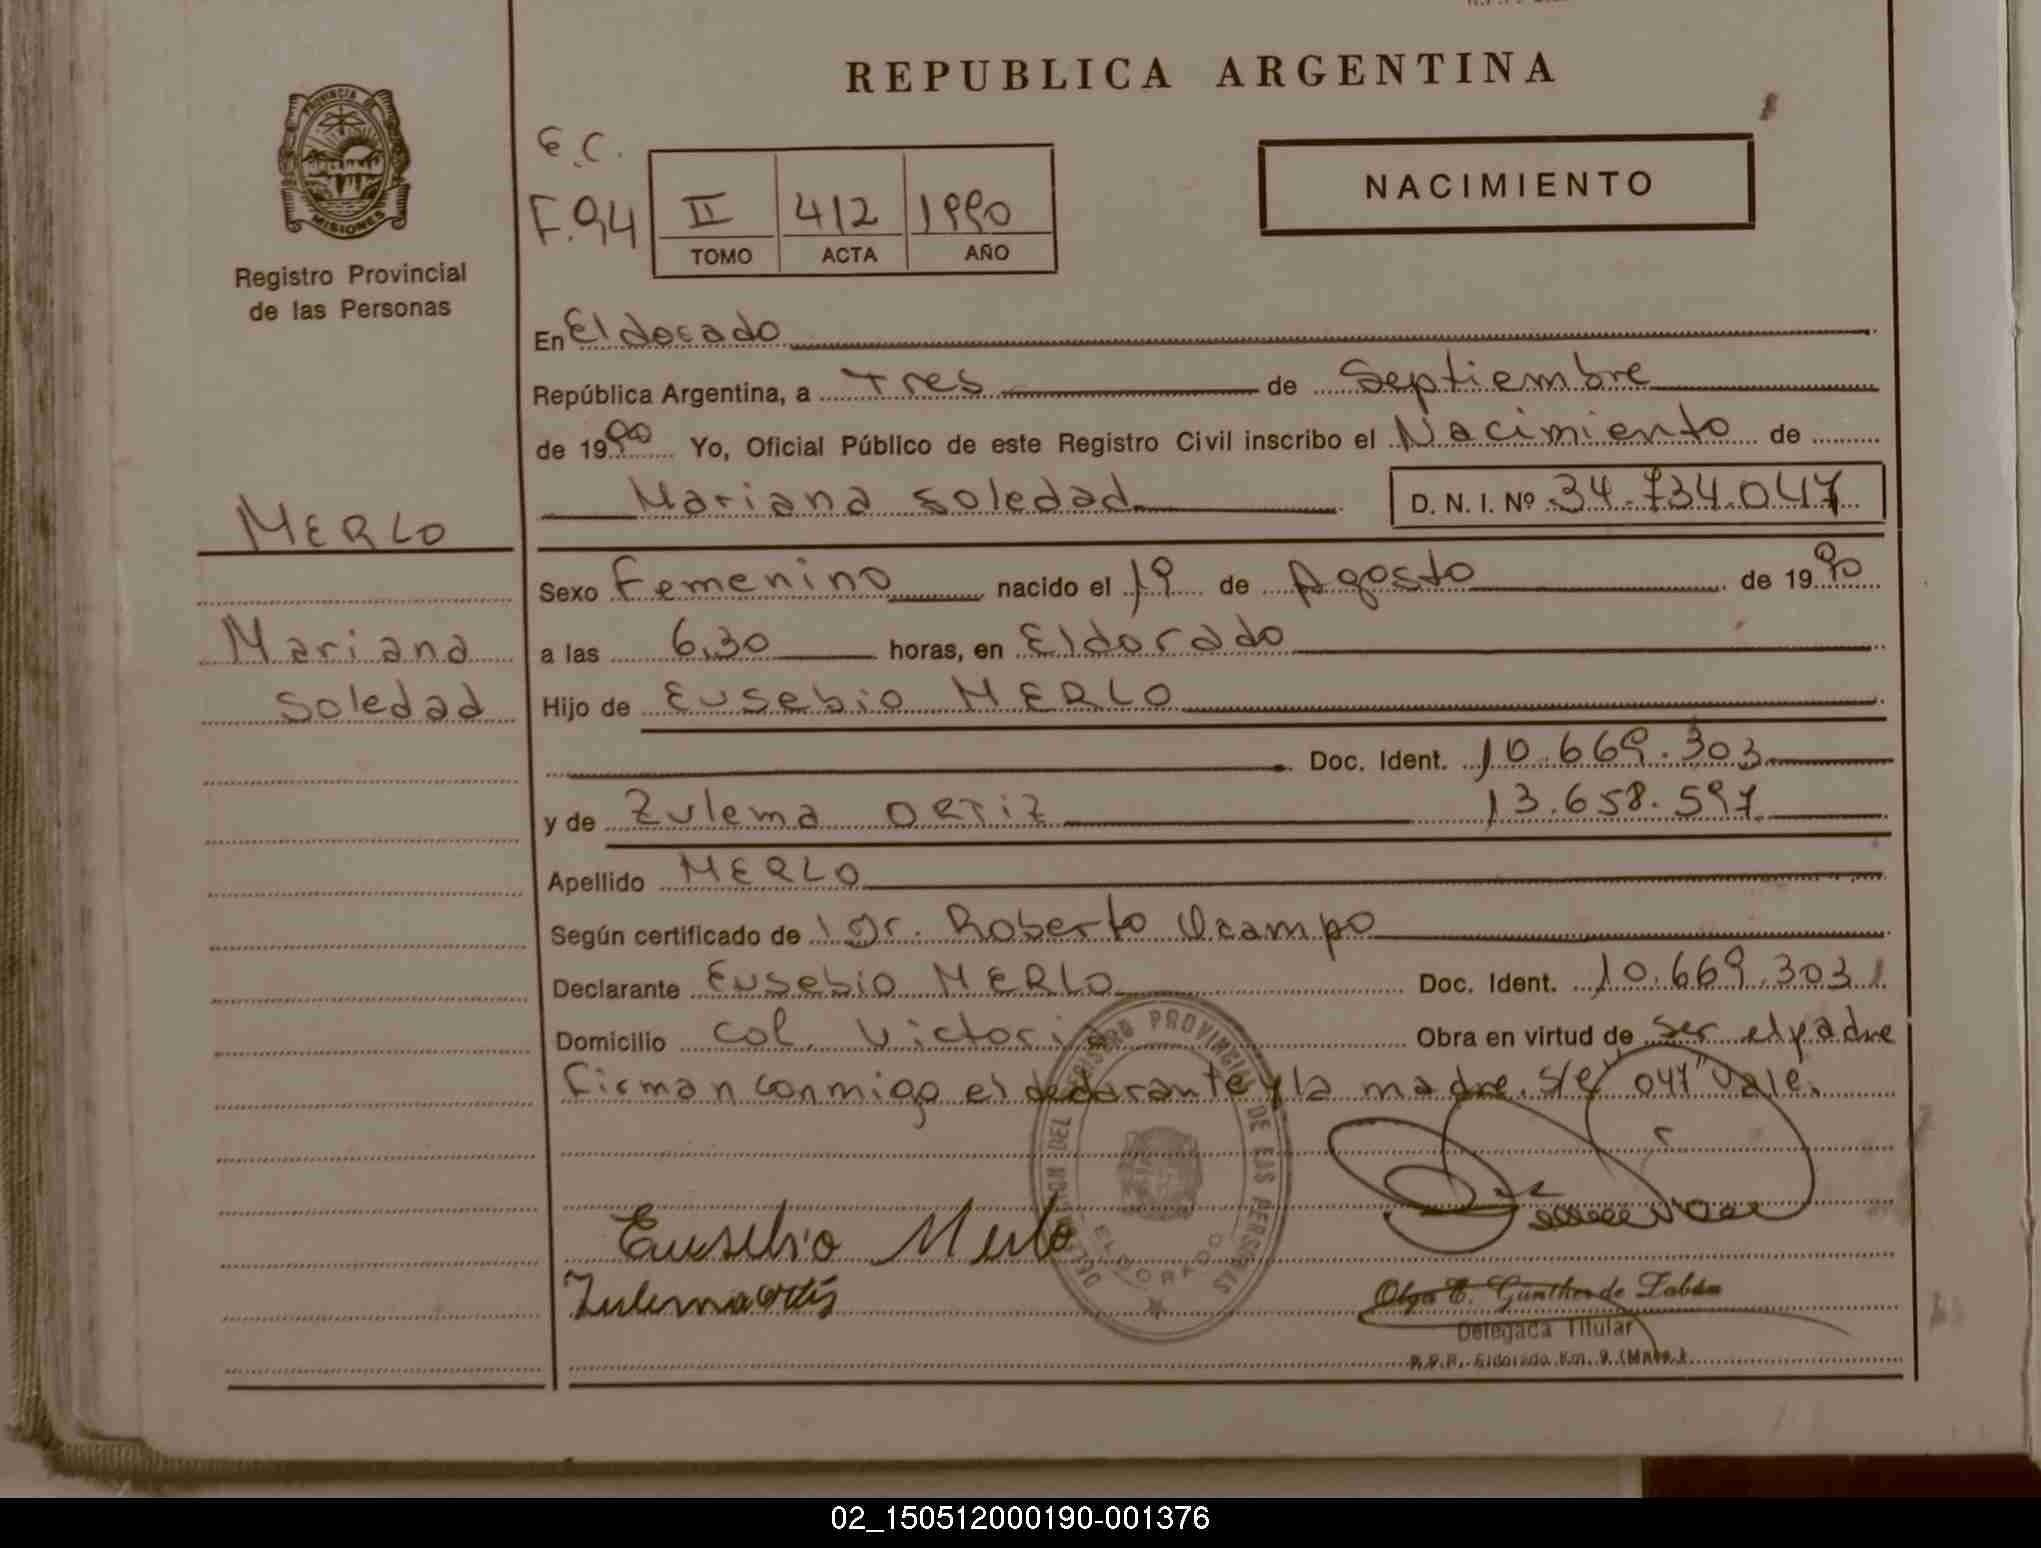 REPUBLICA ARGENTINA
PROVINCIA DE
MISIONES
Registro Provincial
de las Personas
E.C.
F.94
II 412 1990
TOMO ACTA AÑO
NACIMIENTO
En Eldorado
República Argentina, a Tres de Septiembre
de 1990 Yo, Oficial Público de este Registro Civil inscribo el Nacimiento de
Mariana Soledad D. N. I. Nº 34.734.047
MERLO
Mariana
Soledad
Sexo Femenino nacido el 19 de Agosto de 1990
a las 6,30 horas, en Eldorado
Hijo de Eusebio MERLO
Doc. Ident. 10.669.303
y de Zulema ORTIZ 13.658.597
Apellido MERLO
Según certificado de Dr. Roberto Ocampo
Declarante Eusebio MERLO Doc. Ident. 10.669.303
Domicilio Col. Victoria Obra en virtud de ser el padre
Firman conmigo el declarante y la madre. S/e "047" Vale.
DELEGACION DEL REGISTRO PROVINCIAL DE LAS PERSONAS
ELDORADO
Eusebio Merlo
Zulema Ortis
Olga E. Günther de Zabán
Delegada Titular
R.P.P. Eldorado Km. 9 (Mnes.)
02_150512000190-001376